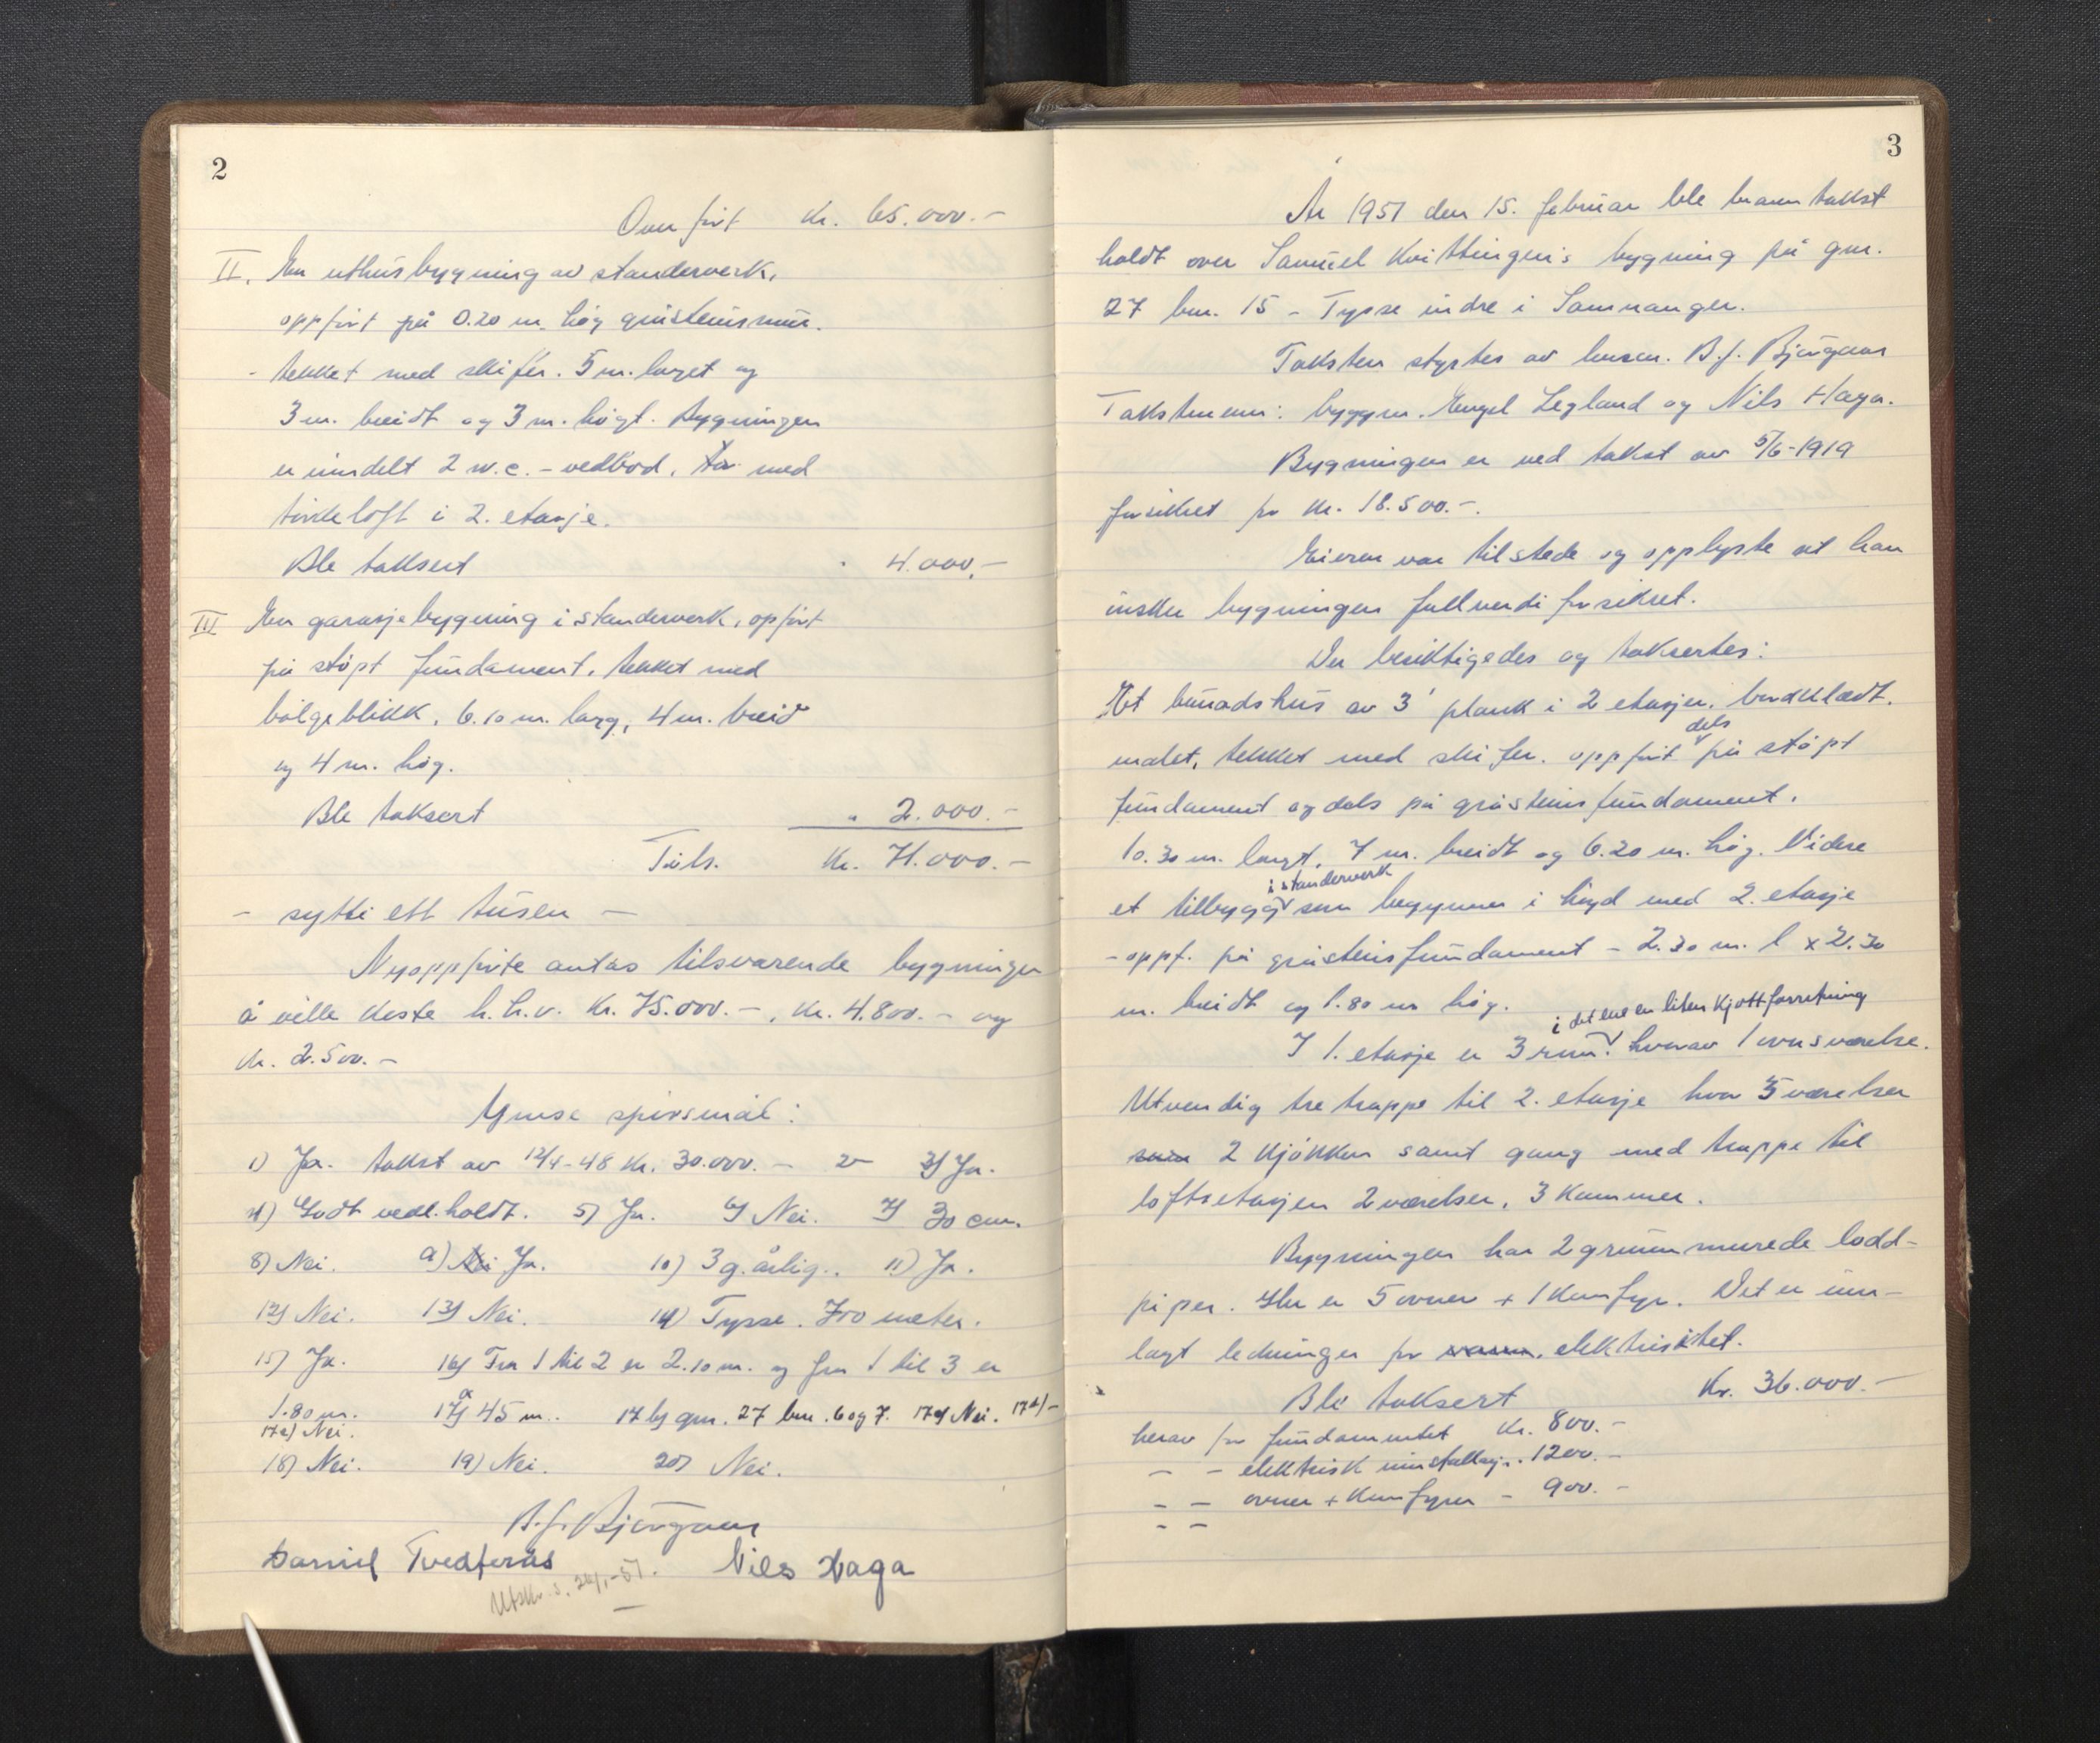 2
Overført Kr. 65.000.-
II. En uthusbygning av standerverk,
oppført på 0.20 m. høg gråsteinsmur.
- tekket med skifer. 5 m. langt og
3 m. breidt og 3 m. høgt. Bygningen
er inndelt 2 w.c. - vedbod. med
tørkeloft i 2. etasje.
Ble taksert " 4.000.-
III En garasjebygning i standerverk, opført
på støpt fundament, tekket med
bølgeblikk, 6.10 m. lang, 4 m. breid
og 4 m. høg.
Ble taksert " 2.000.-
Tils. Kr. 71.000.-
- sytti ett tusen -
Nyoppførte antas tilsvarende bygninger
å ville koste h.h.v. Kr. 75.000.-, Kr. 4.800.- og
Kr. 2.500.-
Ymse spørsmål:
1) Ja. takst av 12/4-48 Kr. 30.000.- 2- 3) Ja.
4) Godt vedl.holdt. 5) Ja. 6) Nei. 7) 30 cm.
8) Nei. 9) Nei Ja. 10) 3 g. årlig. 11) Ja.
12) Nei. 13) Nei. 14) Tysse. 700 meter.
15) Ja. 16) Fra 1 til 2 er 2.10 m. og fra 1 til 3 er
1.80 m. 17a) 45 m. 17 b) gnr. 27 bnr. 6 og 7. 17c) Nei. 17d) -
17e) Nei.
18) Nei. 19) Nei. 20) Nei.
B.J. Bjørgaas
Daniel Tvedterås Nils Haga
Utskr. s. 26/1-51.
3
År 1951 den 15. februar ble branntakst
holdt over Samuel Kvittingen's bygning på gnr.
27 bnr. 15 - Tysse indre i Samnanger.
Taksten styrtes av lensm. B.J. Bjørgaas
Takstmenn: byggm. Engel Legland og Nils Haga.
Bygningen er ved takst av 5/6-1919
forsikret for Kr. 18.500.-.
Eieren var tilstede og opplyste at han
ønsker bygningen fullverdiforsikret.
Der besiktigedes og taksertes:
Et bunadshus av 3" plank i 2 etasjer, bordklædt.
malet, tekket med skifer. oppført dels på støpt
fundament og dels på gråsteinsfundament.
10.30 m. langt, 7 m. breidt og 6.20 m. høg. Videre
et tilbygg i standerverk som begynner i høyd med 2. etasje
- oppf. på gråsteinsfundament - 2.30 m. l x 2.30
m. breidt og 1.80 m høg.
I 1. etasje er 3 rum. i det ene en liten kjøttforretning hvorav 1 ovnsværelse.
Utvendig tre trappe til 2. etasje hvor 5 værelser
som 2 kjøkken samt gang med trappe til
loftsetasjen 2 værelser, 3 kammer.
Bygningen har 2 grunnmurede lodd-
piper. Her er 5 ovner + 1 komfyr. Det er inn-
lagt ledninger for vann. elektrisitet.
Ble taksert Kr. 36.000.-
herav for fundamentet Kr. 800.-
- - elektrisk innstallasj. - 1200.-
- - ovner + komfyrer - 900.-
- -